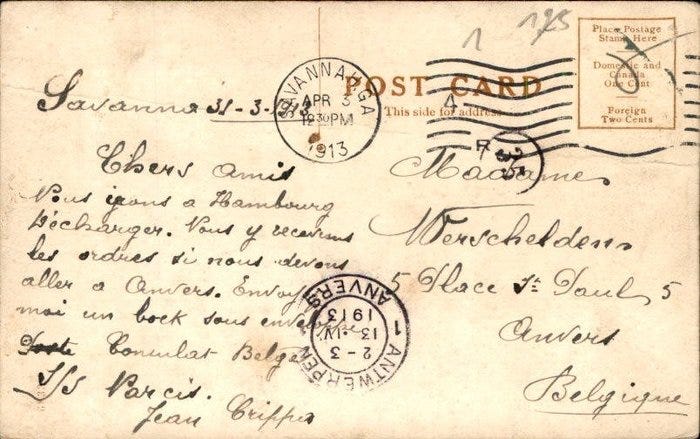 1 175
Place Postage
Stamp Here
Domestic and
Canada
One Cent
Foreign
Two Cents
POST CARD
This side for address
SAVANNAH, GA
APR 3
12 30 PM
1913
4
Savanna 31-3-1913
Chers amis
Nous irons a Hambourg
Décharger. Nous y recevrons
les ordres si nous devons
aller a Anvers. Envoy
moi un bock sous enveloppe
Poste Consulat Belge
S/S Parcis.
Jean Crippa
Madame
Werscheldens
5 Place St Paul 5
Anvers
Belgique
1 ANTWERPEN
2-3
13·IV
1913
ANVERS